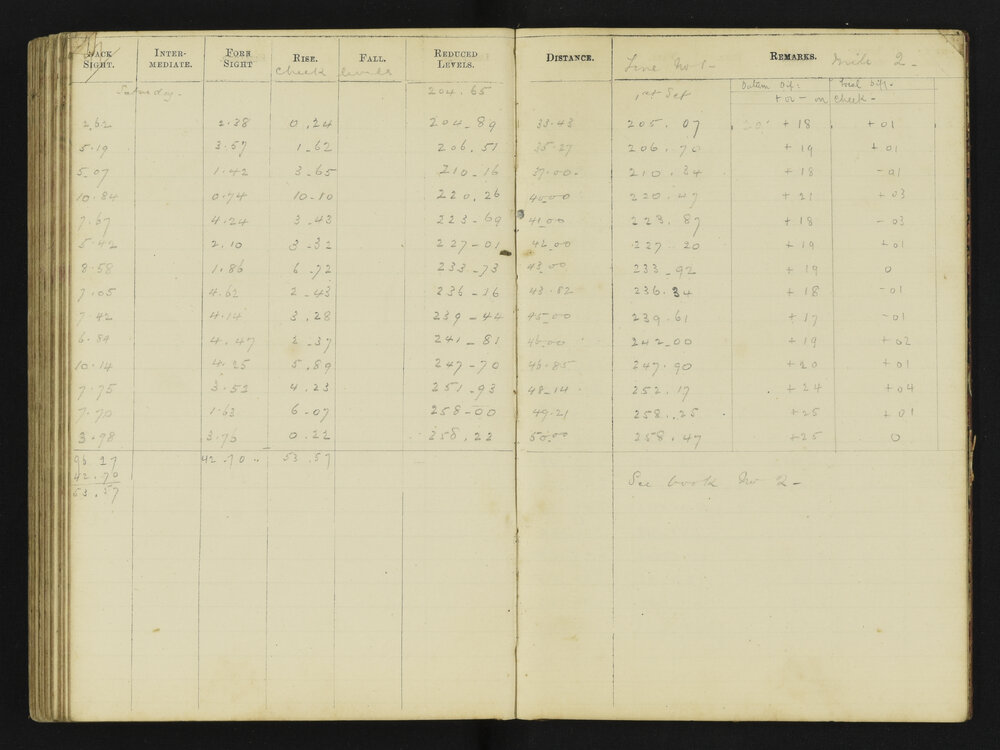 BACK SIGHT. INTER-MEDIATE. FORE SIGHT RISE. FALL. REDUCED LEVELS. DISTANCE. REMARKS.
Check levels Line No 1- Mile 2-
Saturday- 204.65 1st Set Datum Dif: Local Diff-
+ or - on Check-
2.62 2.38 0.24 204.89 33.43 205.07 +18 +01
5.19 3.57 1.62 206.51 35.27 206.70 +19 +01
5.07 1.42 3.65 210.16 37.00 210.34 +18 -01
10.84 0.74 10.10 220.26 40.00 220.47 +21 +03
7.67 4.24 3.43 223.69 41.00 223.87 +18 -03
5.42 2.10 3.32 227.01 42.00 227.20 +19 +01
8.58 1.86 6.72 233.73 43.00 233.92 +19 0
7.05 4.62 2.43 236.16 43.82 236.34 +18 -01
7.42 4.14 3.28 239.44 45.00 239.61 +17 -01
6.84 4.47 2.37 241.81 46.00 242.00 +19 +02
10.14 4.25 5.89 247.70 46.85 247.90 +20 +01
7.75 3.52 4.23 251.93 48.14 252.17 +24 +04
7.70 1.63 6.07 258.00 49.21 258.25 +25 +01
3.98 3.76 0.22 258.22 50.00 258.47 +25 0
96.27 42.70 53.57
42.70
53.57
See book No 2-